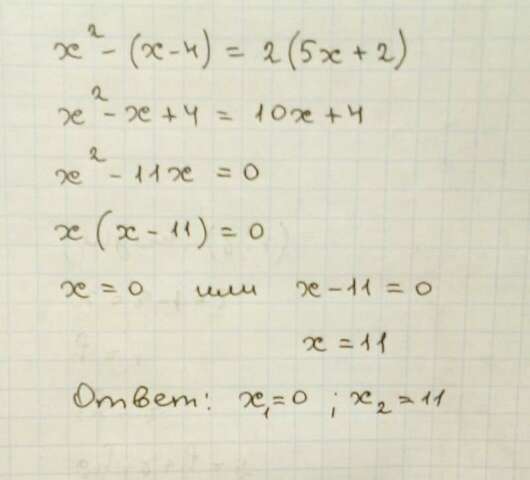 x² - (x - 4) = 2(5x + 2)
x² - x + 4 = 10x + 4
x² - 11x = 0
x(x - 11) = 0
x = 0 или x - 11 = 0
x = 11
Ответ: x₁ = 0 ; x₂ = 11